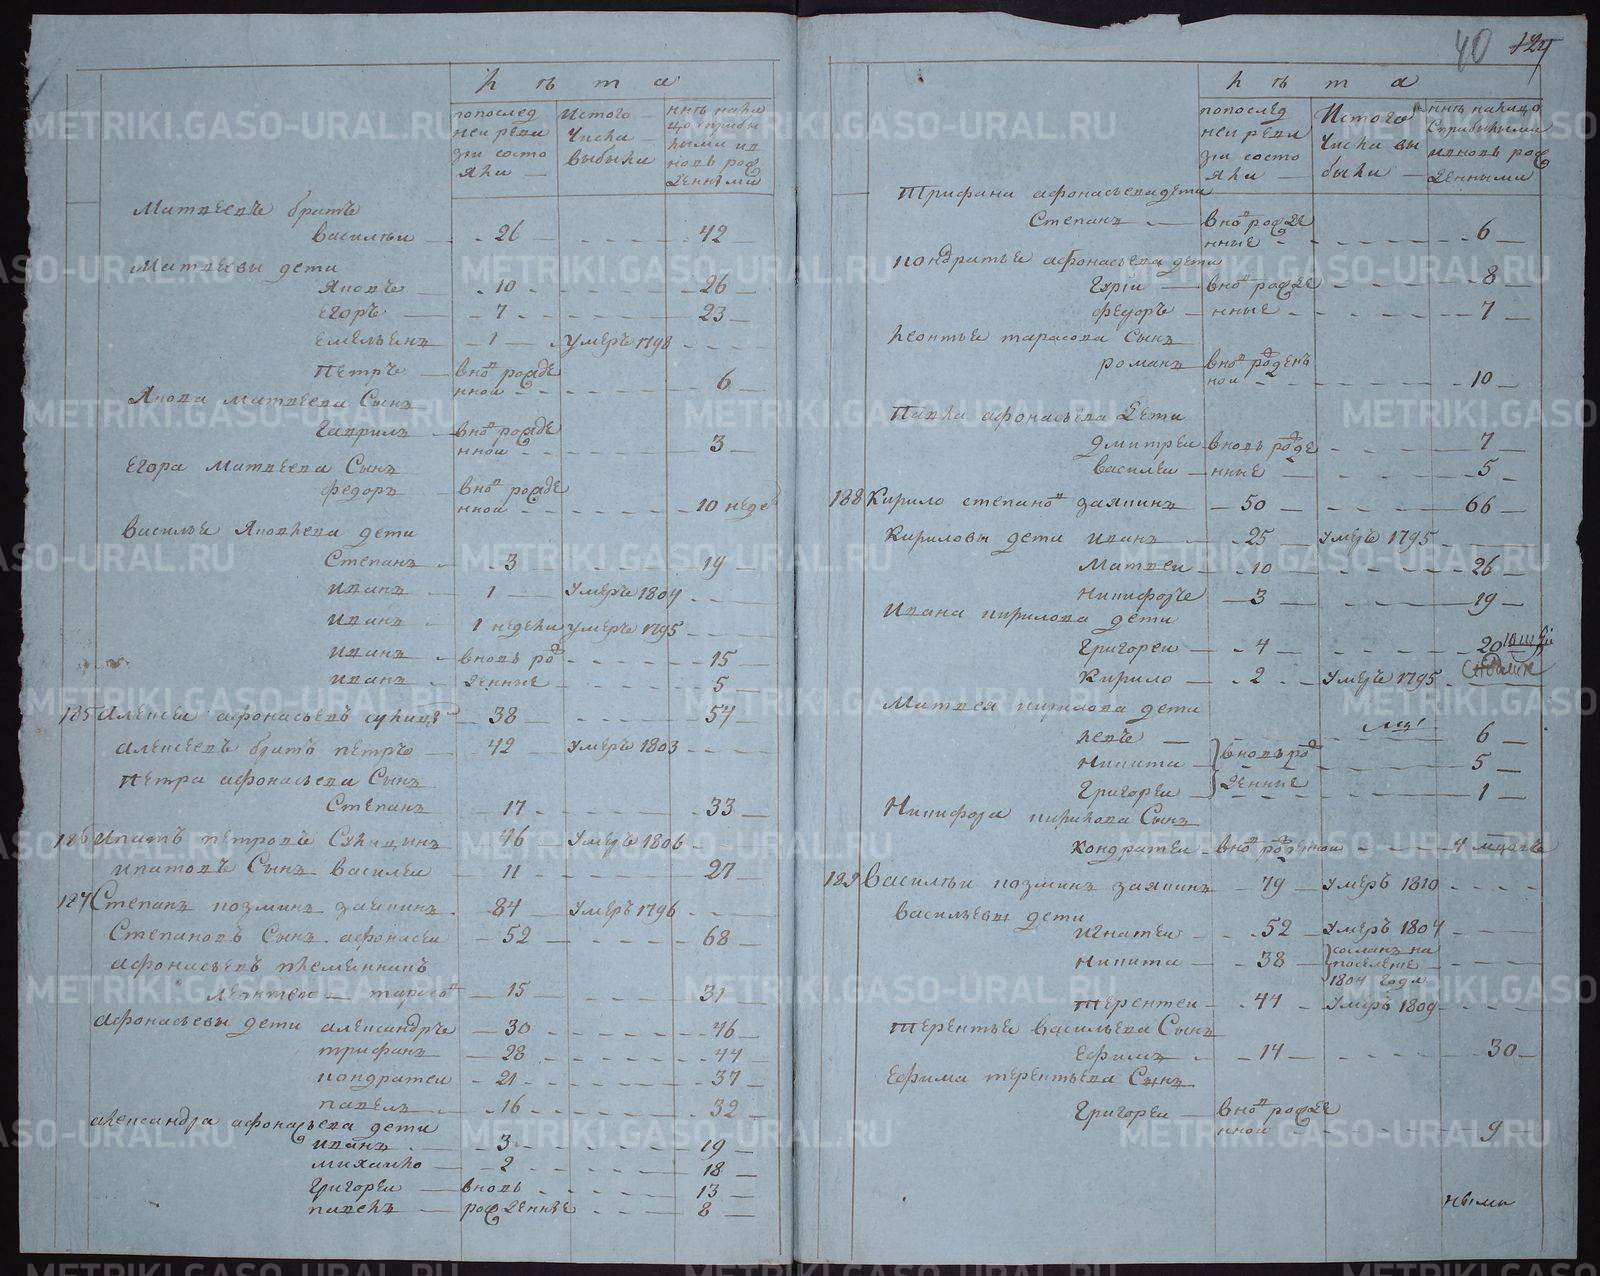 40 124
лѣта
попослед
ней реви
зии состо
яли
Истого
Числа
выбыли
ннѣ нали
цо сприбы
лыми и в
новь рож
денными
Матвеевъ братъ
василеи 26 42
Матвѣевы дети
Яковъ 10 26
Егоръ 7 23
емельянъ 1 умеръ 1798
Петръ вновь рожде
нной 6
Якова матвеева Сынъ
гаврилъ вновь рожде
нной 3
Егора Матвеева Сынъ
федоръ вновь рожде
нной 10 неде
василье Яковлева дети
Степанъ 3 19
иванъ 1 умеръ 1804
иванъ 1 недели умеръ 1795
иванъ вновь ро 15
иванъ жденные 5
185 Алексеи афонасьевъ 38 54
алексеевъ братъ петръ 42 умеръ 1803
петра афонасьева Сынъ
Степанъ 17 33
186 Ипатъ петровъ 46 умеръ 1806
ипатовъ Сынъ василеи 11 27
187 Степанъ козминъ заякинъ 84 умеръ 1796
Степановъ Сынъ афонасеи 52 68
афонасьевъ племенникъ
леонтеи тарасов 15 31
афонасьевы дети александръ 30 46
трифанъ 28 44
кондратеи 21 37
павелъ 16 32
александра афонасьева дети
иванъ 3 19
михаило 2 18
григореи вновь 13
павелъ рожденные 8
лѣта
попослед
неи реви
зии состо
яли
Истого
Числа вы
были
ннѣ налицо
Сприбылыми
ивновь рож
денными
Трифана афонасьевадети
Степанъ вновь рожде
нные 6
кондратье афонасьева дети
гурiи вновь рожде 8
федоръ нные 7
леонтье тарасова Сынъ
романъ вновь рожденъ
ной 10
Павла афонасьева дети
дмитреи вновь рожде 7
василеи нные 5
188 Кирило степанов заякинъ 50 66
Кириловы дети иванъ 25 умеръ 1795
Матвеи 10 26
никифоръ 3 19
Ивана кирилова дети
григореи 4 20
Кирило 2 умеръ 1795
Матвея кирилова дети
левъ 6
никита вновь ро 5
григореи жденные 1
Никифора кирилова Сынъ
кондратеи вновь рожденнои 4
189 Василеи козминъ заякинъ 79 умеръ 1810
васильевы дети
игнатеи 52 умеръ 1804
никита 38 сосланъ на
поселение
1804 года
терентеи 44 умеръ 1809
терентье васильева Сынъ
ефимъ 14 30
ефима терентьева Сынъ
григореи вновь рожде
нной 9